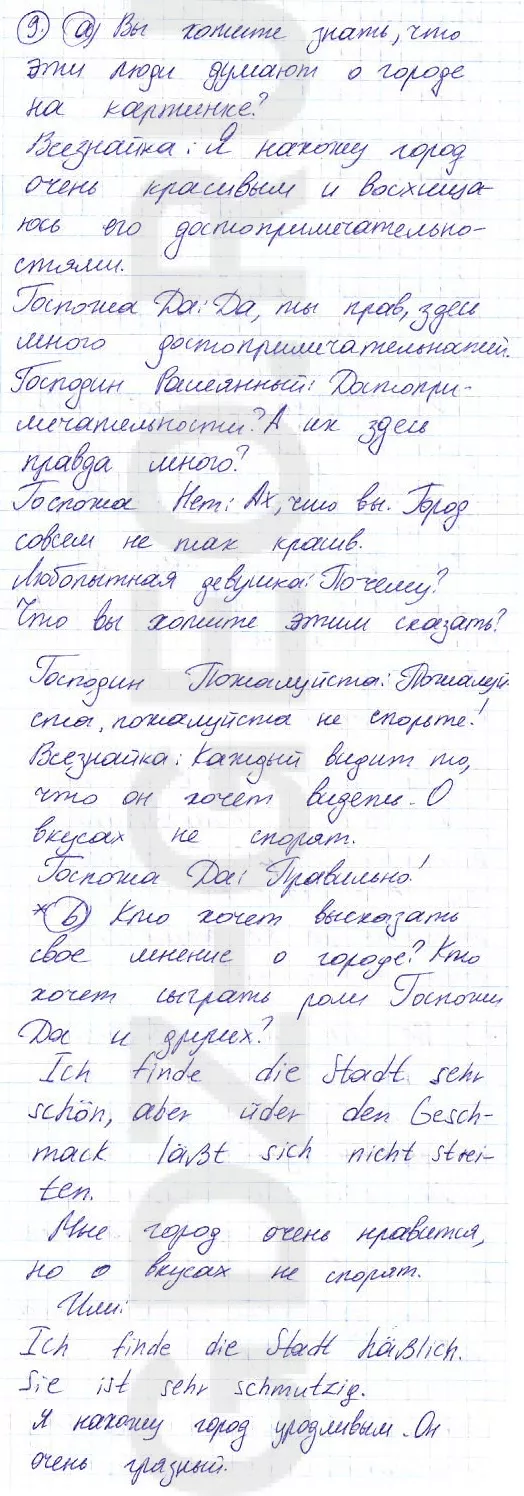 9. а) Вы хотите знать, что
эти люди думают о городе
на картинке?
Всезнайка: Я нахожу город
очень красивым и восхища-
юсь его достопримечательно-
стями.
Госпожа Да: Да, ты прав, здесь
много достопримечательностей.
Господин Рассеянный: Достопри-
мечательности? А их здесь
правда много?
Госпожа Нет: Ах, что вы. Город
совсем не так красив.
Любопытная девушка: Почему?
Что вы хотите этим сказать?
Господин Пожалуйста: Пожалуй
ста, пожалуйста не спорьте!
Всезнайка: Каждый видит то,
что он хочет видеть. О
вкусах не спорят.
Госпожа Да: Правильно!
* b) Кто хочет высказать
свое мнение о городе? Кто
хочет сыграть роли Госпожи
Да и других?
Ich finde die Stadt sehr
schön, aber üder den Gesch-
mack läßt sich nicht strei-
ten.
Мне город очень нравится,
но о вкусах не спорят.
Или:
Ich finde die Stadt häßlich.
Sie ist sehr schmutzig.
Я нахожу город уродливым. Он
очень грязный.
GDZ-GEO.RU